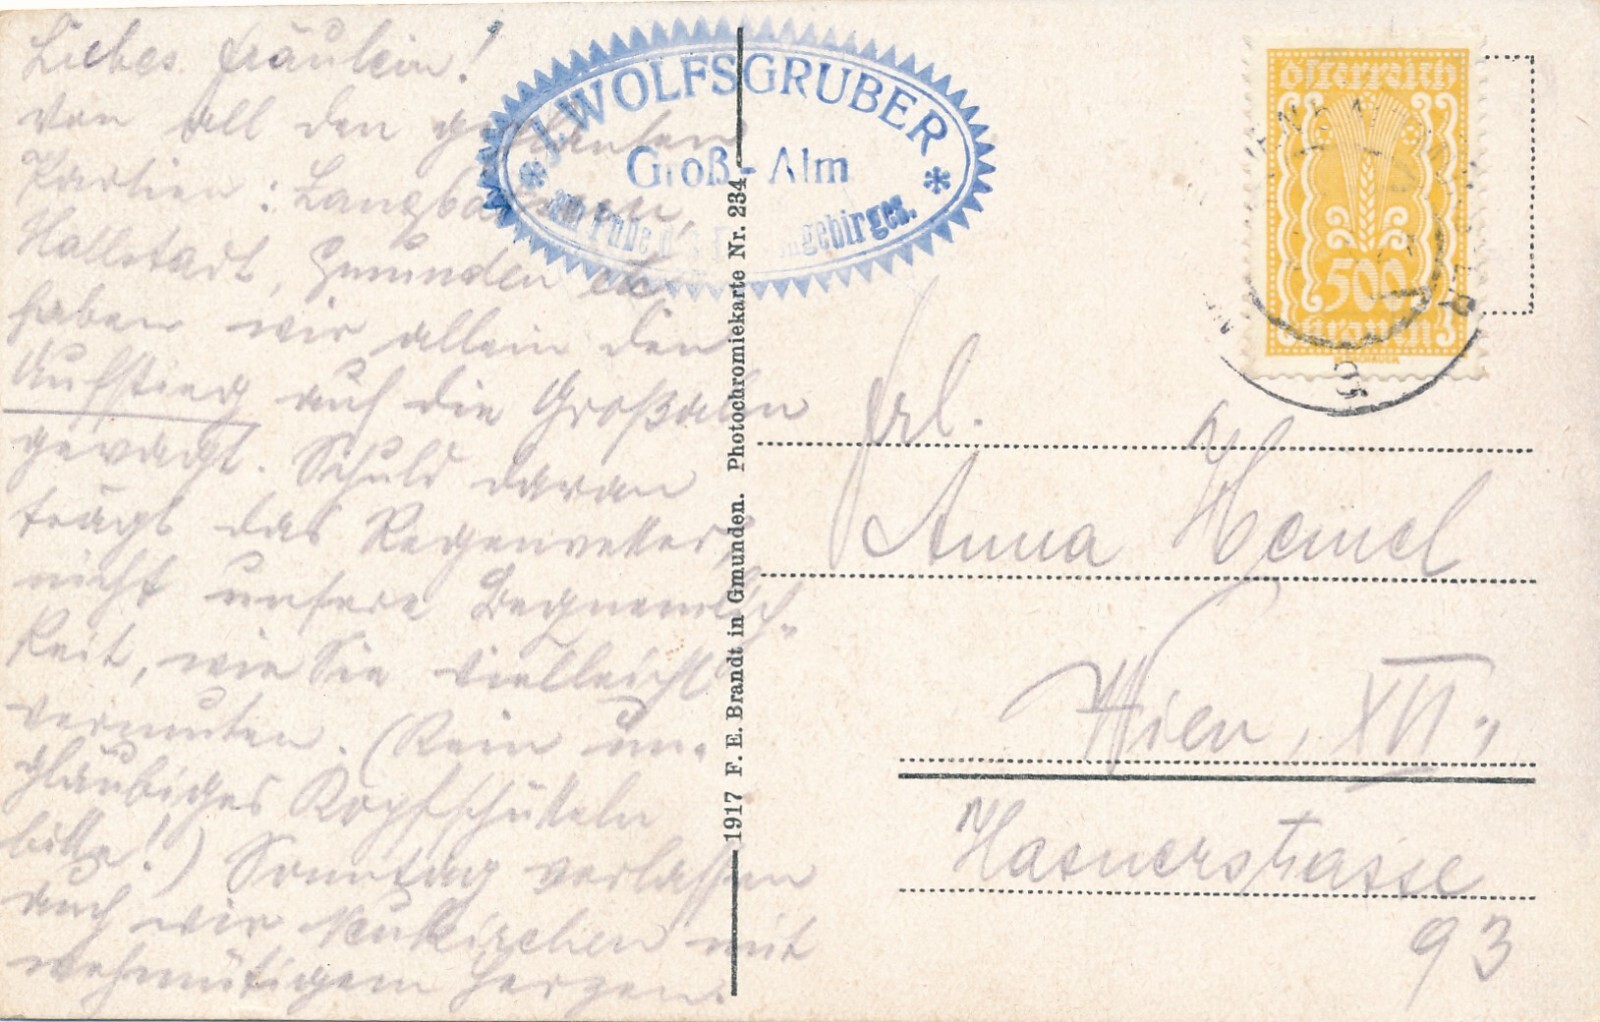 Liebes Fräulein!
Von all den geplanten
Partien: Langbathseen,
Hallstadt, Gmunden etc.
haben wir allein den
Aufstieg auf die Großalm
gewagt. Schuld daran
trägt das Regenwetter,
nicht unsere Bequemlich-
keit, wie Sie vielleicht
vermuten. (Kein un-
gläubiges Kopfschütteln
bitte!) Sonntag verlassen
auch wir Neukirchen mit
wehmütigem Herzen.
J. WOLFSGRUBER
Groß-Alm
am Fuße des gebirges.
1917 F. E. Brandt in Gmunden. Photochromiekarte Nr. 234
österreich
500
kronen
Frl.
Anna Hemel
Wien, XVI.,
Hasnerstrasse
93